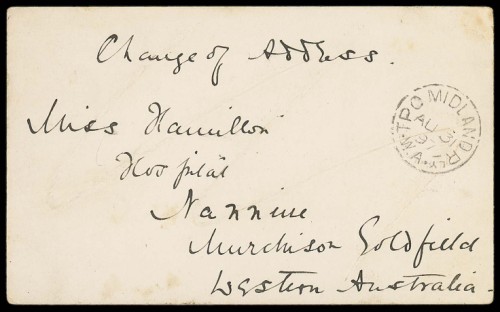 Change of Address.
Miss Hamilton
Hospital
Nannine
Murchison Goldfield
Western Australia.
TPO MIDLAND RLY W.A
AU 31
97